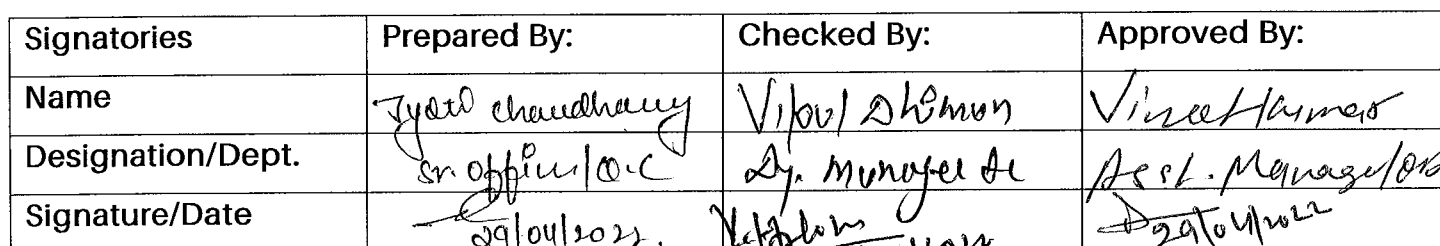 Signatories Prepared By: Checked By: Approved By:
Name Jyoti chaudhary Vipul Dhiman Vineet Kumar
Designation/Dept. Sr. officer/Q.C Dy. Manager Asst. Manager/
Signature/Date 29/04/2022. 29/04/2022